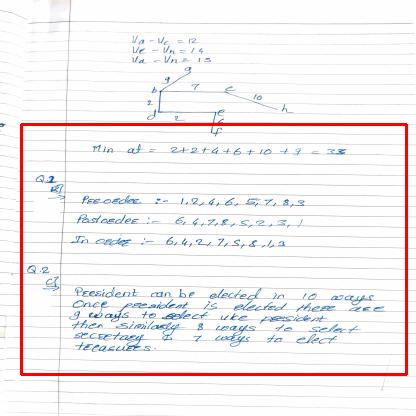 Va - Vc = 12
Ve - Vn = 14
Va - Vn = 15
g
9
b 7 c
10
2 h
d 2 e
f
Min at = 2+2+4+6+10+9 = 33
Q.2
B)
Preorder :- 1,2,4,6,5,7,8,3
Postorder :- 6,4,7,8,5,2,3,1
In order :- 6,4,2,7,5,8,1,3
Q.2
c)
President can be elected in 10 ways
Once president is elected there are
9 ways to select vice president
then similarly 8 ways to select
secretary & 7 ways to elect
treasurer.